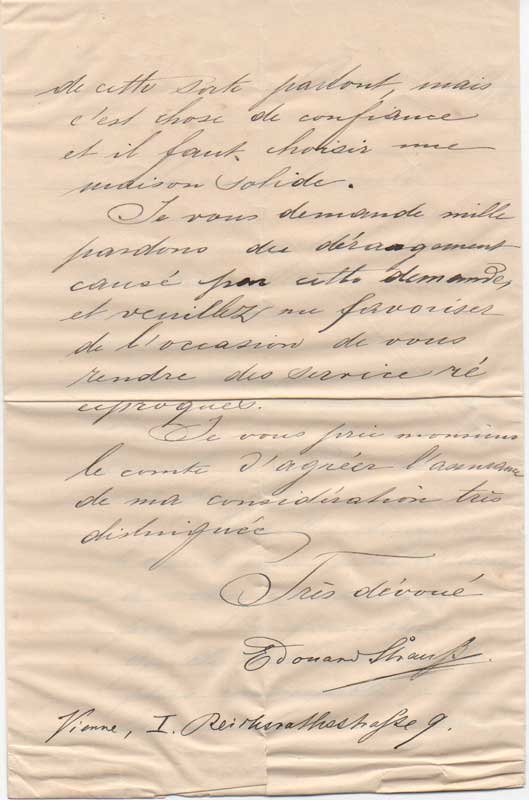 de cette sorte partout, mais
c'est chose de confiance
et il faut choisir une
maison solide.
Je vous demande mille
pardons du dérangement
causé par cette demande,
et veuillez me favoriser
de l'occasion de vous
rendre des service ré
ciproques.
Je vous prie monsieur
le comte d'agréer l'assurance
de ma considération très
distinguée
Très dévoué
Edouard Strauß.
Vienne, I. Reichsrathsstraße 9.